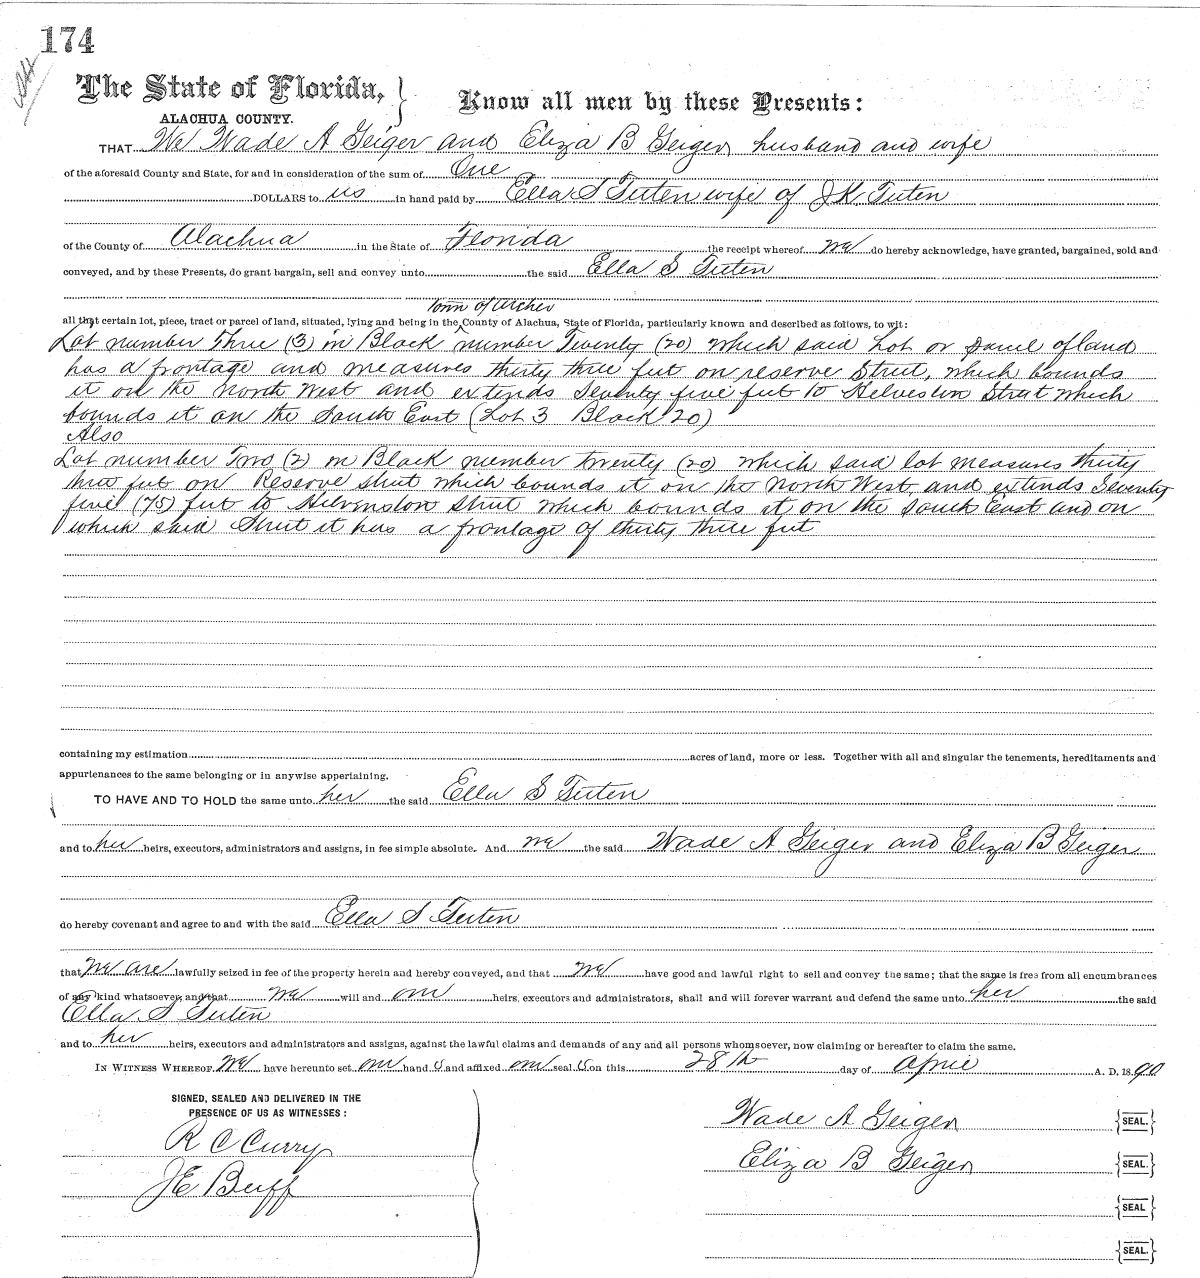 174
The State of Florida,
ALACHUA COUNTY.
Know all men by these Presents:
THAT We Wade A Geiger and Eliza B Geiger husband and wife
of the aforesaid County and State, for and in consideration of the sum of One
DOLLARS to us in hand paid by Ella S Tuten wife of J K Tuten
of the County of Alachua in the State of Florida the receipt whereof we do hereby acknowledge, have granted, bargained, sold and
conveyed, and by these Presents, do grant bargain, sell and convey unto the said Ella S Tuten
Town of Archer
all that certain lot, piece, tract or parcel of land, situated, lying and being in the County of Alachua, State of Florida, particularly known and described as follows, to wit:
Lot number Three (3) in Block number Twenty (20) which said Lot or parcel of land
has a frontage and measures thirty three feet on reserve Street, which bounds
it on the North West and extends Seventy five feet to Helveston Street which
bounds it on the South East (Lot 3 Block 20)
Also
Lot number Two (2) in Block number twenty (20) which said lot measures thirty
three feet on Reserve street which bounds it on the North West and extends Seventy
five (75) feet to street which bounds it on the South East and on
which said Street it has a frontage of thirty three feet
containing my estimation acres of land, more or less. Together with all and singular the tenements, hereditaments and
appurtenances to the same belonging or in anywise appertaining.
TO HAVE AND TO HOLD the same unto her the said Ella S Tuten
and to her heirs, executors, administrators and assigns, in fee simple absolute. And we the said Wade A Geiger and Eliza B Geiger
do hereby covenant and agree to and with the said Ella S Tuten
that we are lawfully seized in fee of the property herein and hereby conveyed, and that we have good and lawful right to sell and convey the same; that the same is free from all encumbrances
of any kind whatsoever, and that we will and our heirs, executors and administrators, shall and will forever warrant and defend the same unto her the said
Ella S Tuten
and to her heirs, executors and administrators and assigns, against the lawful claims and demands of any and all persons whomsoever, now claiming or hereafter to claim the same.
IN WITNESS WHEREOF we have hereunto set our hand s and affixed our seal s on this 28th day of April A. D. 1890
SIGNED, SEALED AND DELIVERED IN THE
PRESENCE OF US AS WITNESSES:
R C Curry
J E Buff
Wade A Geiger SEAL.
Eliza B Geiger SEAL.
SEAL
SEAL.